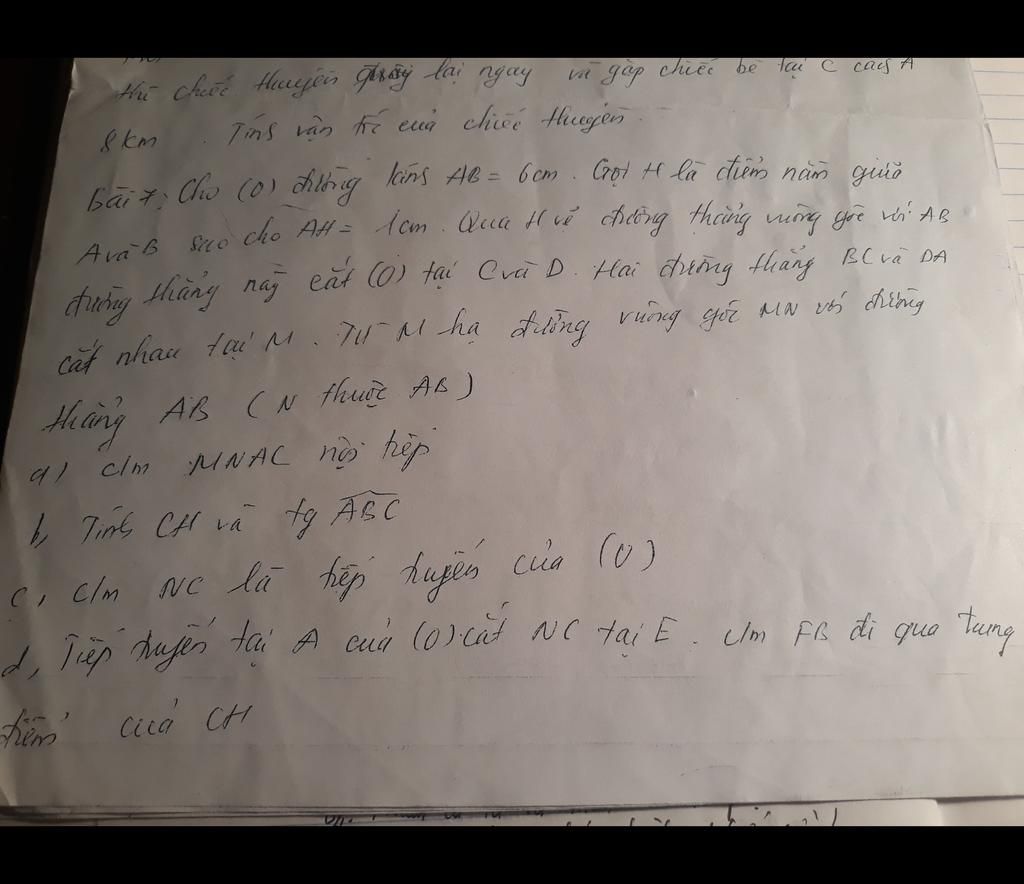 thì chiếc thuyền quay lại ngay và gặp chiếc bè tại C cách A
8km. Tính vận tốc của chiếc thuyền.
bài 7: Cho (O) đường kính AB = 6cm. Gọi H là điểm nằm giữa
A và B sao cho AH = 1cm. Qua H vẽ đường thẳng vuông góc với AB
đường thẳng này cắt (O) tại C và D. Hai đường thẳng BC và DA
cắt nhau tại M. Từ M hạ đường vuông góc MN với đường
thẳng AB (N thuộc AB)
a) c/m MNAC nội tiếp
b, Tính CH và tg ABC
c, c/m NC là tiếp tuyến của (O)
d, Tiếp tuyến tại A của (O) cắt NC tại E. c/m EB đi qua trung
điểm của CH